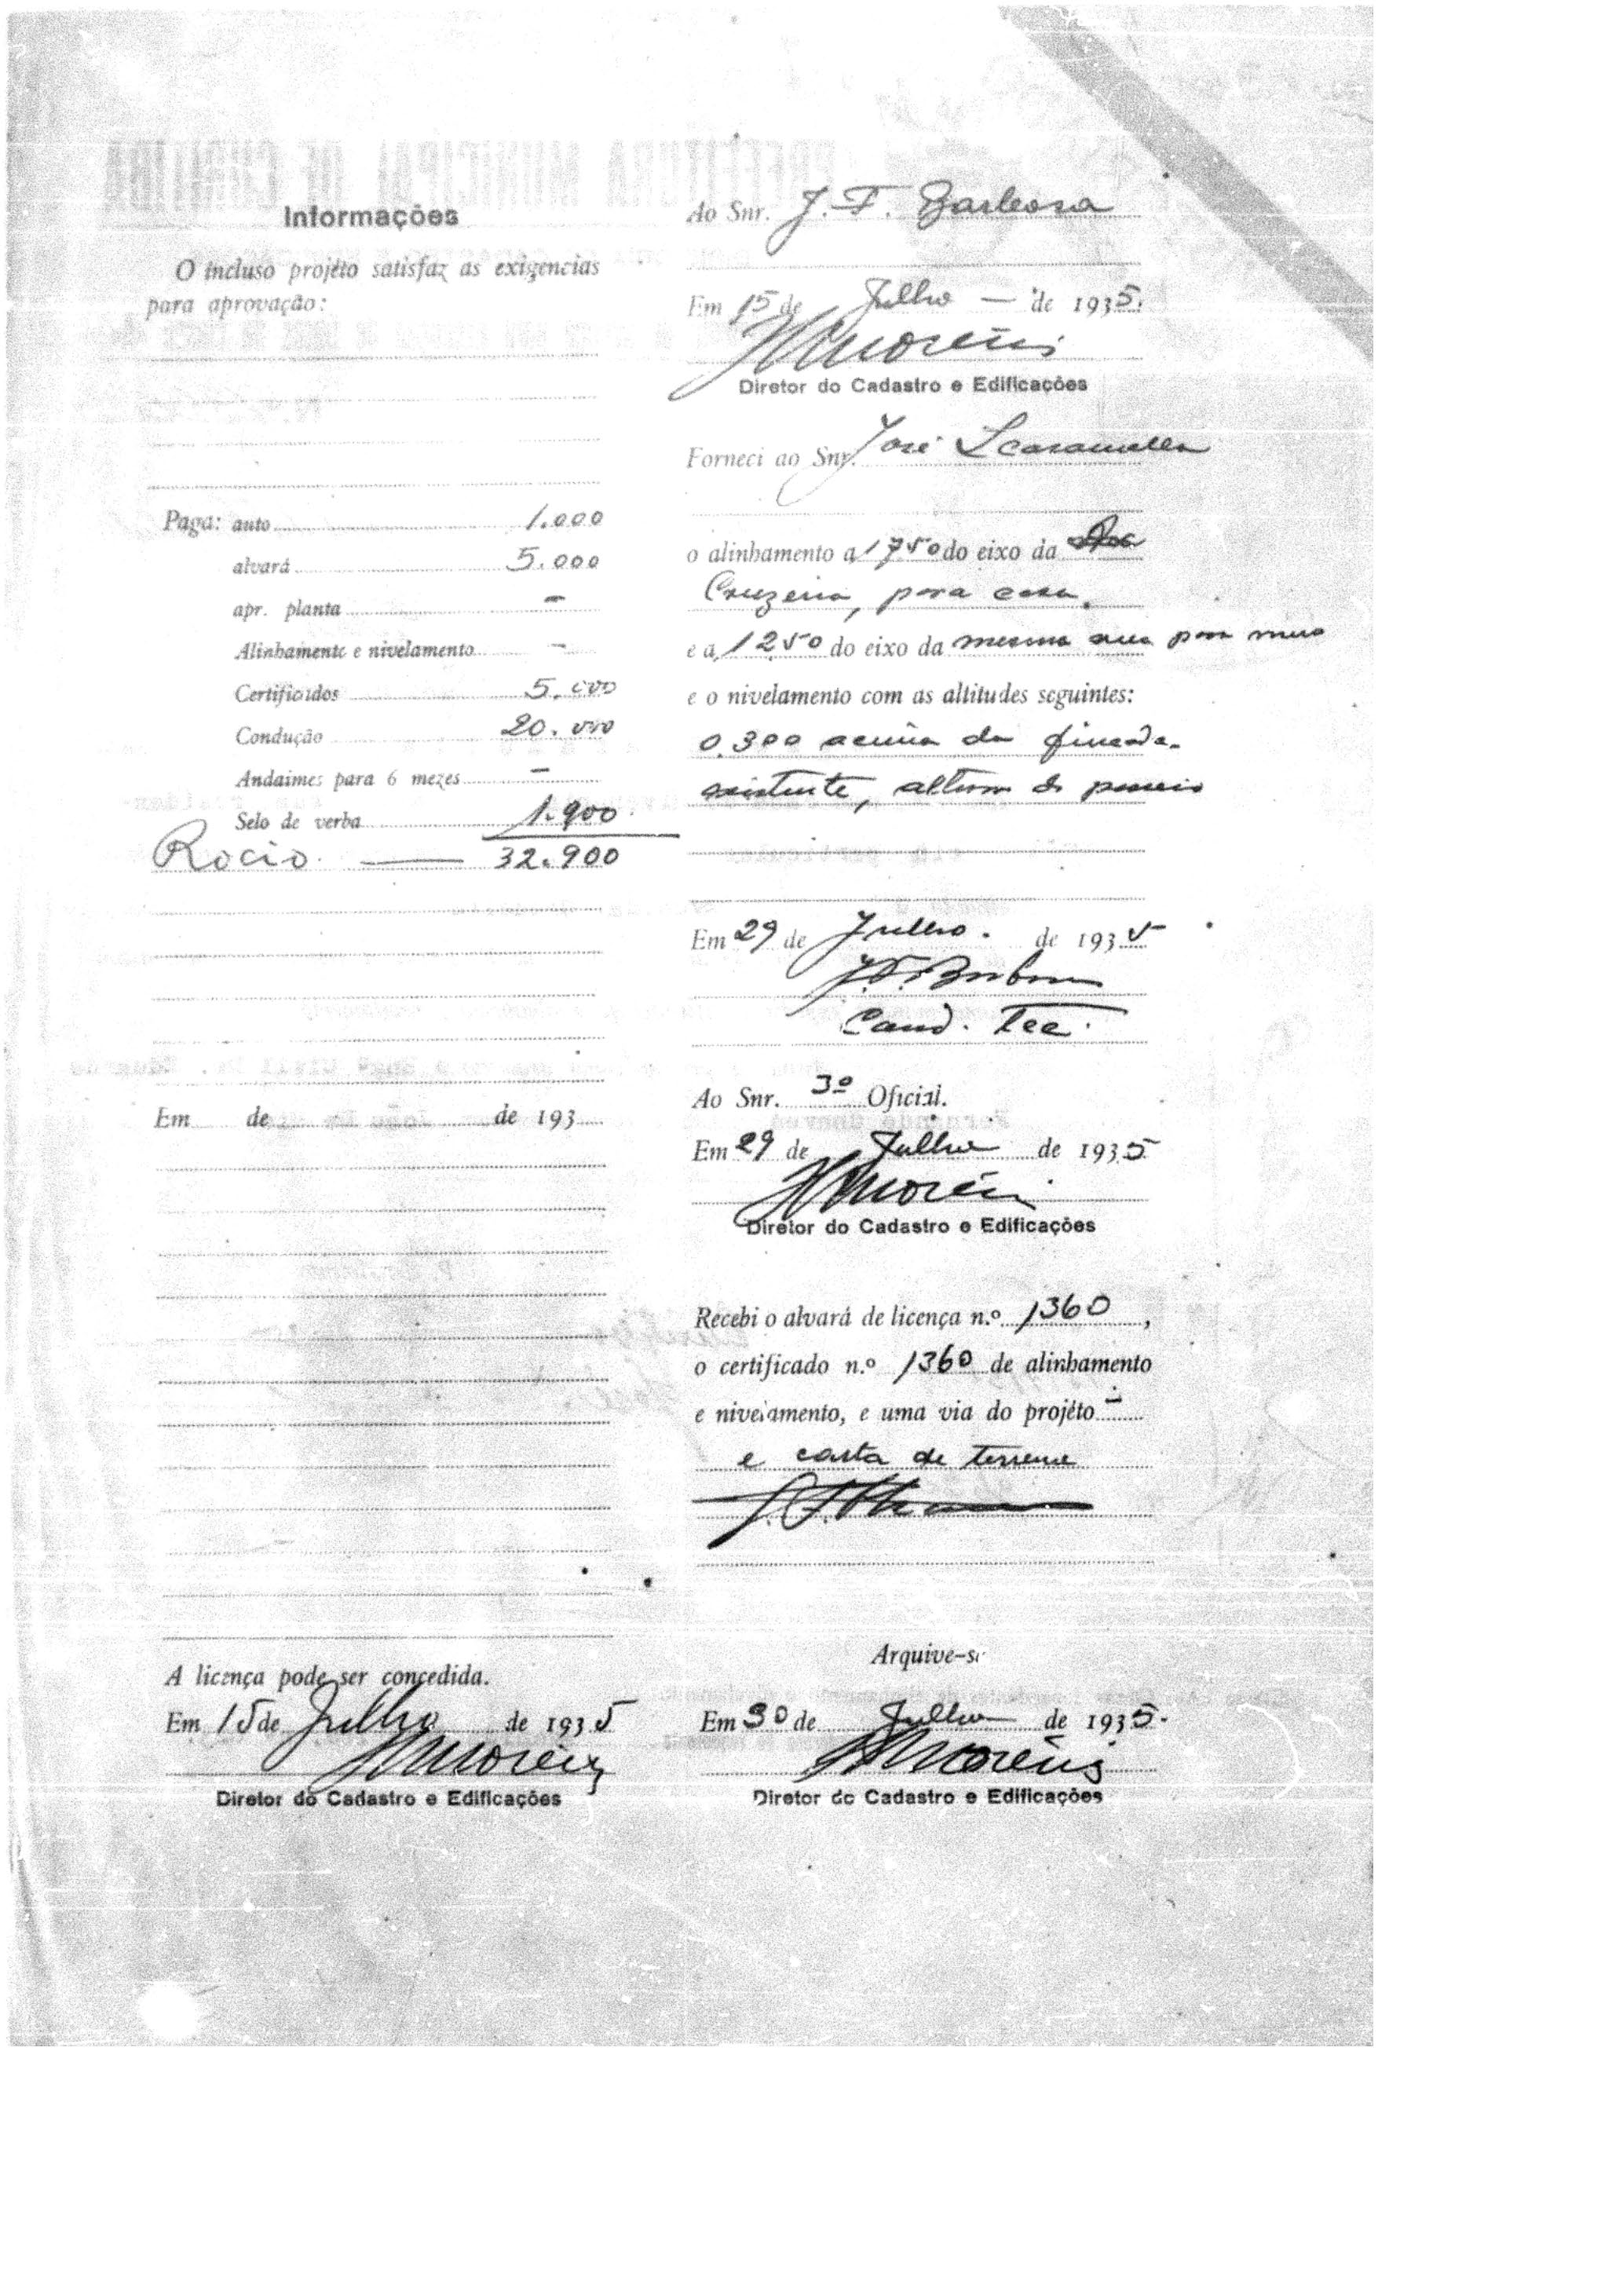 Informações
O incluso projéto satisfaz as exigencias
para aprovação:
Paga: auto 1.000
alvará 5.000
apr. planta –
Alinhamento e nivelamento –
Certificados 5.000
Condução 20.000
Andaimes para 6 mezes –
Selo de verba 1.900
Rocio. — 32.900
Em de de 193
A licença pode ser concedida.
Em 15 de Julho de 1935
Diretor do Cadastro e Edificações
Ao Snr. J. F. Barbosa
Em 15 de Julho — de 1935.
Diretor do Cadastro e Edificações
Forneci ao Snr. José Scaramella
o alinhamento a 1750 do eixo da
Cruzeiro, para casa.
e a 1250 do eixo da mesma rua para muro
e o nivelamento com as altitudes seguintes:
0.300 acima da
existente, altura do passeio
Em 29 de Julho. de 1935
J.F. Barbosa
Cond. Tec.
Ao Snr. 3º Oficial.
Em 29 de Julho de 1935
Diretor do Cadastro e Edificações
Recebi o alvará de licença n.º 1360,
o certificado n.º 1360 de alinhamento
e nivelamento, e uma via do projéto
e carta de terreno
Arquive-se
Em 30 de Julho de 1935.
Diretor do Cadastro e Edificações